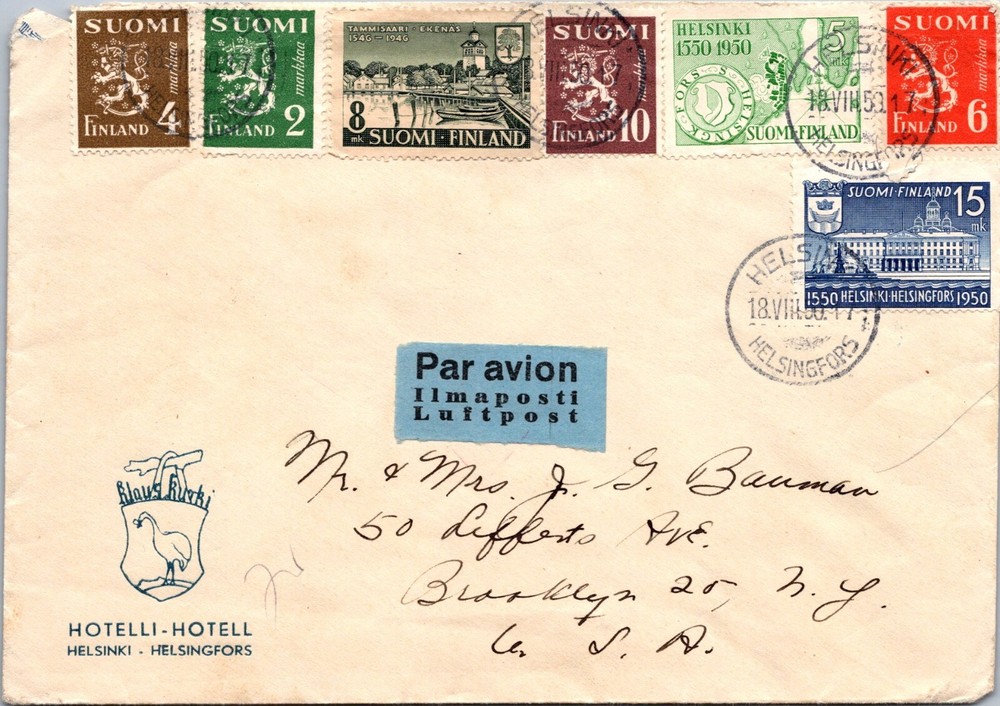 SUOMI
markkaa
FINLAND 4
SUOMI
markkaa
FINLAND 2
TAMMISAARI EKENÄS
1546 - 1946
8 mk SUOMI-FINLAND
SUOMI
markkaa
FINLAND 10
HELSINKI
1550 1950
5 mk
HELSINGFORS
SUOMI-FINLAND
SUOMI
markkaa
FINLAND 6
HELSINKI
18.VIII.50.17
HELSINGFORS
SUOMI-FINLAND 15 mk
1550 HELSINKI-HELSINGFORS 1950
HELSINKI
18.VIII.50.17
HELSINGFORS
Par avion
Ilmaposti
Luftpost
Mr. & Mrs. J. G. Bauman
50 Lefferts Ave.
Brooklyn 25, N. Y.
U. S. A.
Klaus Kurki
HOTELLI-HOTELL
HELSINKI - HELSINGFORS